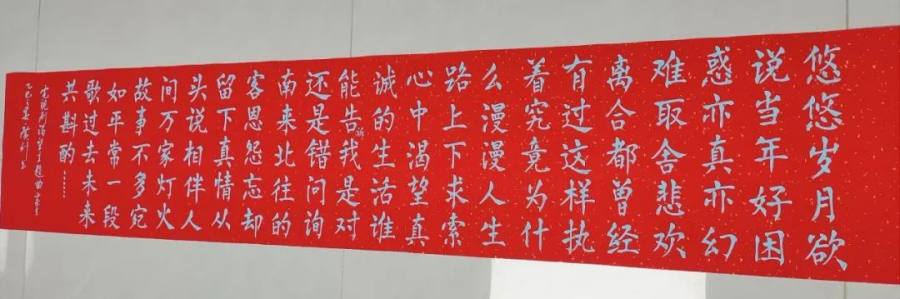 悠悠岁月欲
说当年好困
惑亦真亦幻
难取舍悲欢
离合都曾经
有过这样执
着究竟为什
么漫漫人生
路上下求索
心中渴望真
诚的生活谁
能告诉我是对
还是错问询
南来北往的
客恩怨忘却
留下真情从
头说相伴人
间万家灯火
故事不多宛
如平常一段
歌过去未来
共斟酌……
电视剧渴望主题曲